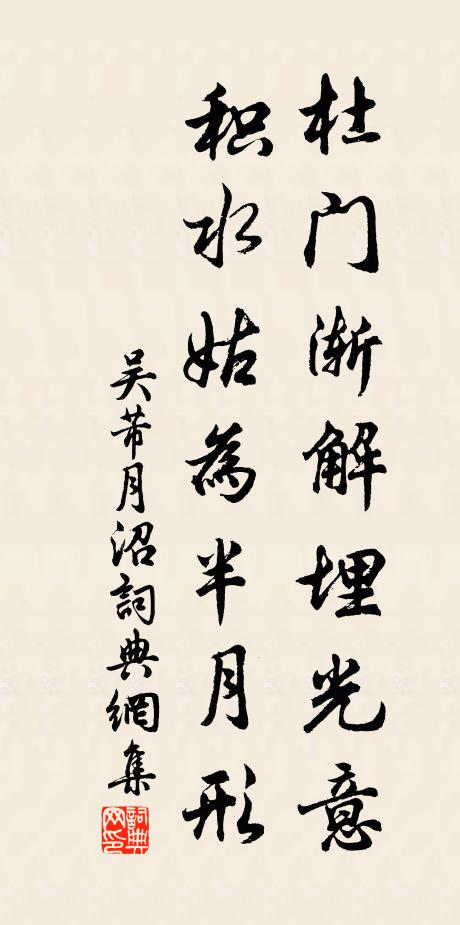 杜门渐解埋光意
积水姑為半月形
吴芾月沼詞典網集
詞典网印